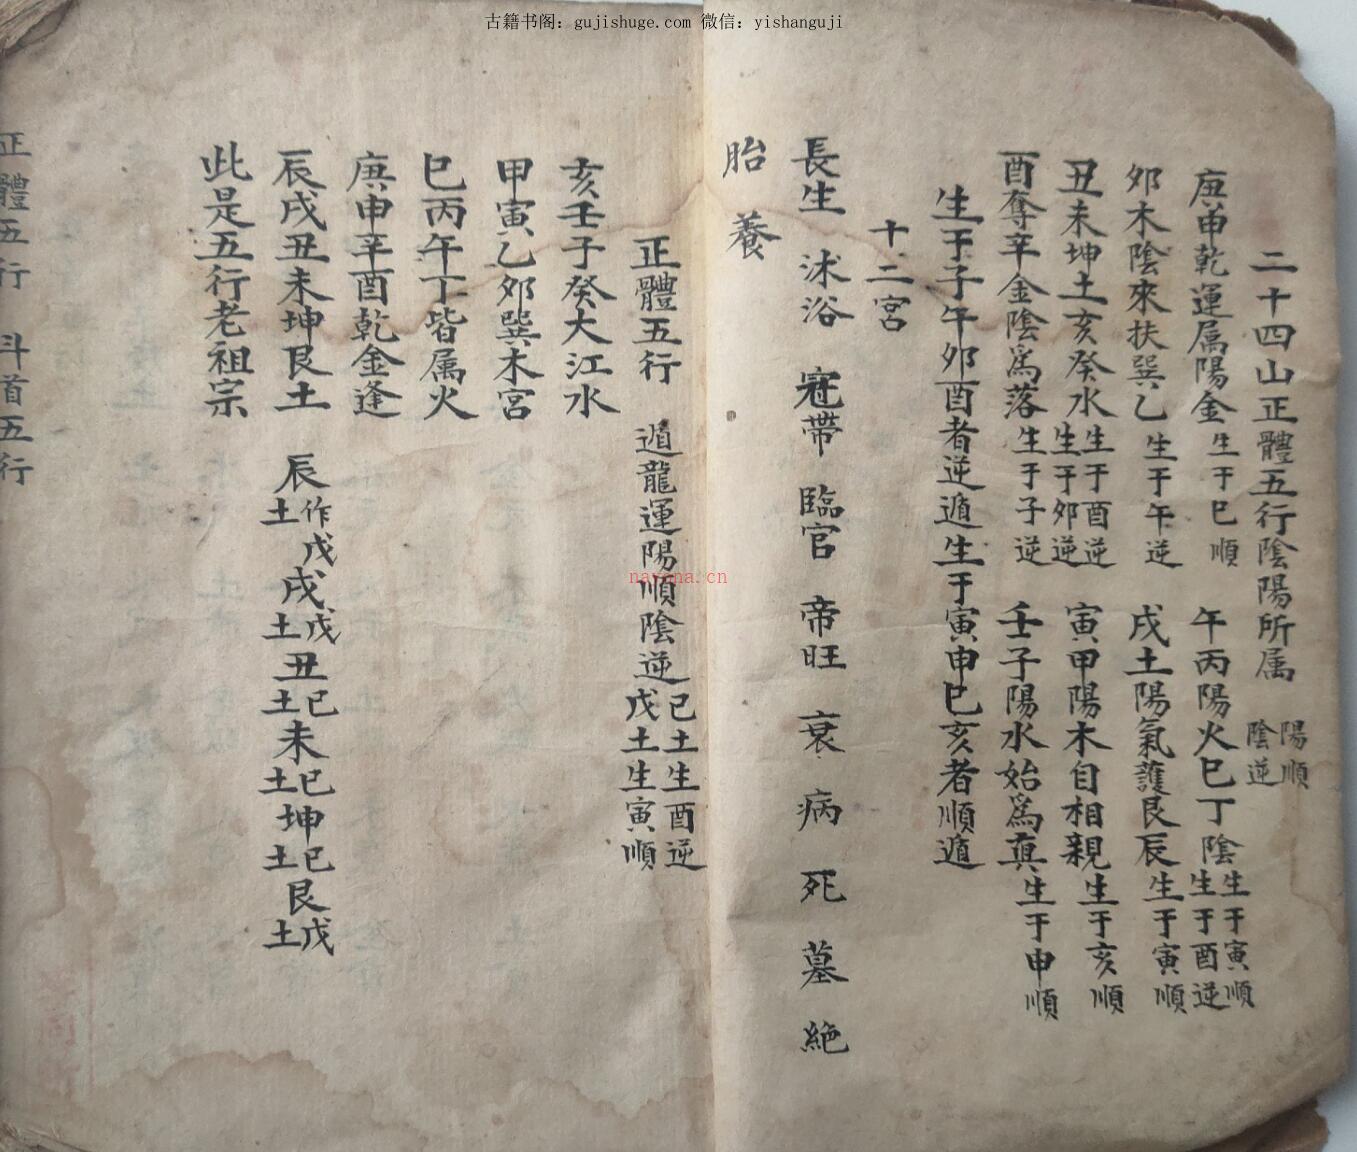 古籍书阁：gujishuge.com 微信：yishanguji
二十四山正體五行陰陽所属 陽順 陰逆
庚申乾運属陽金 生于巳順 午丙陽火巳丁陰 生于寅順 生于酉逆
夘木陰來扶巽乙 生于午逆 戌土陽氣護艮辰 生于寅順
丑未坤土亥癸水 生于酉逆 生于夘逆 寅甲陽木自相親 生于亥順
酉奪辛金陰為落 生于子逆 壬子陽水始為真 生于申順
生于子午夘酉者逆遁生于寅申巳亥者順遁
十二宮
長生 沭浴 冠帶 臨官 帝旺 衰 病 死 墓 絶
胎 養
正體五行 遁龍運陽順陰逆 己土生酉逆 戊土生寅順
亥壬子癸大江水
甲寅乙夘巽木宮
巳丙午丁皆属火
庚申辛酉乾金逢
辰戌丑未坤艮土 辰作戊土戌戊土丑己土未己土坤己土艮戊土
此是五行老祖宗
正體五行 斗首五行
nayona.cn